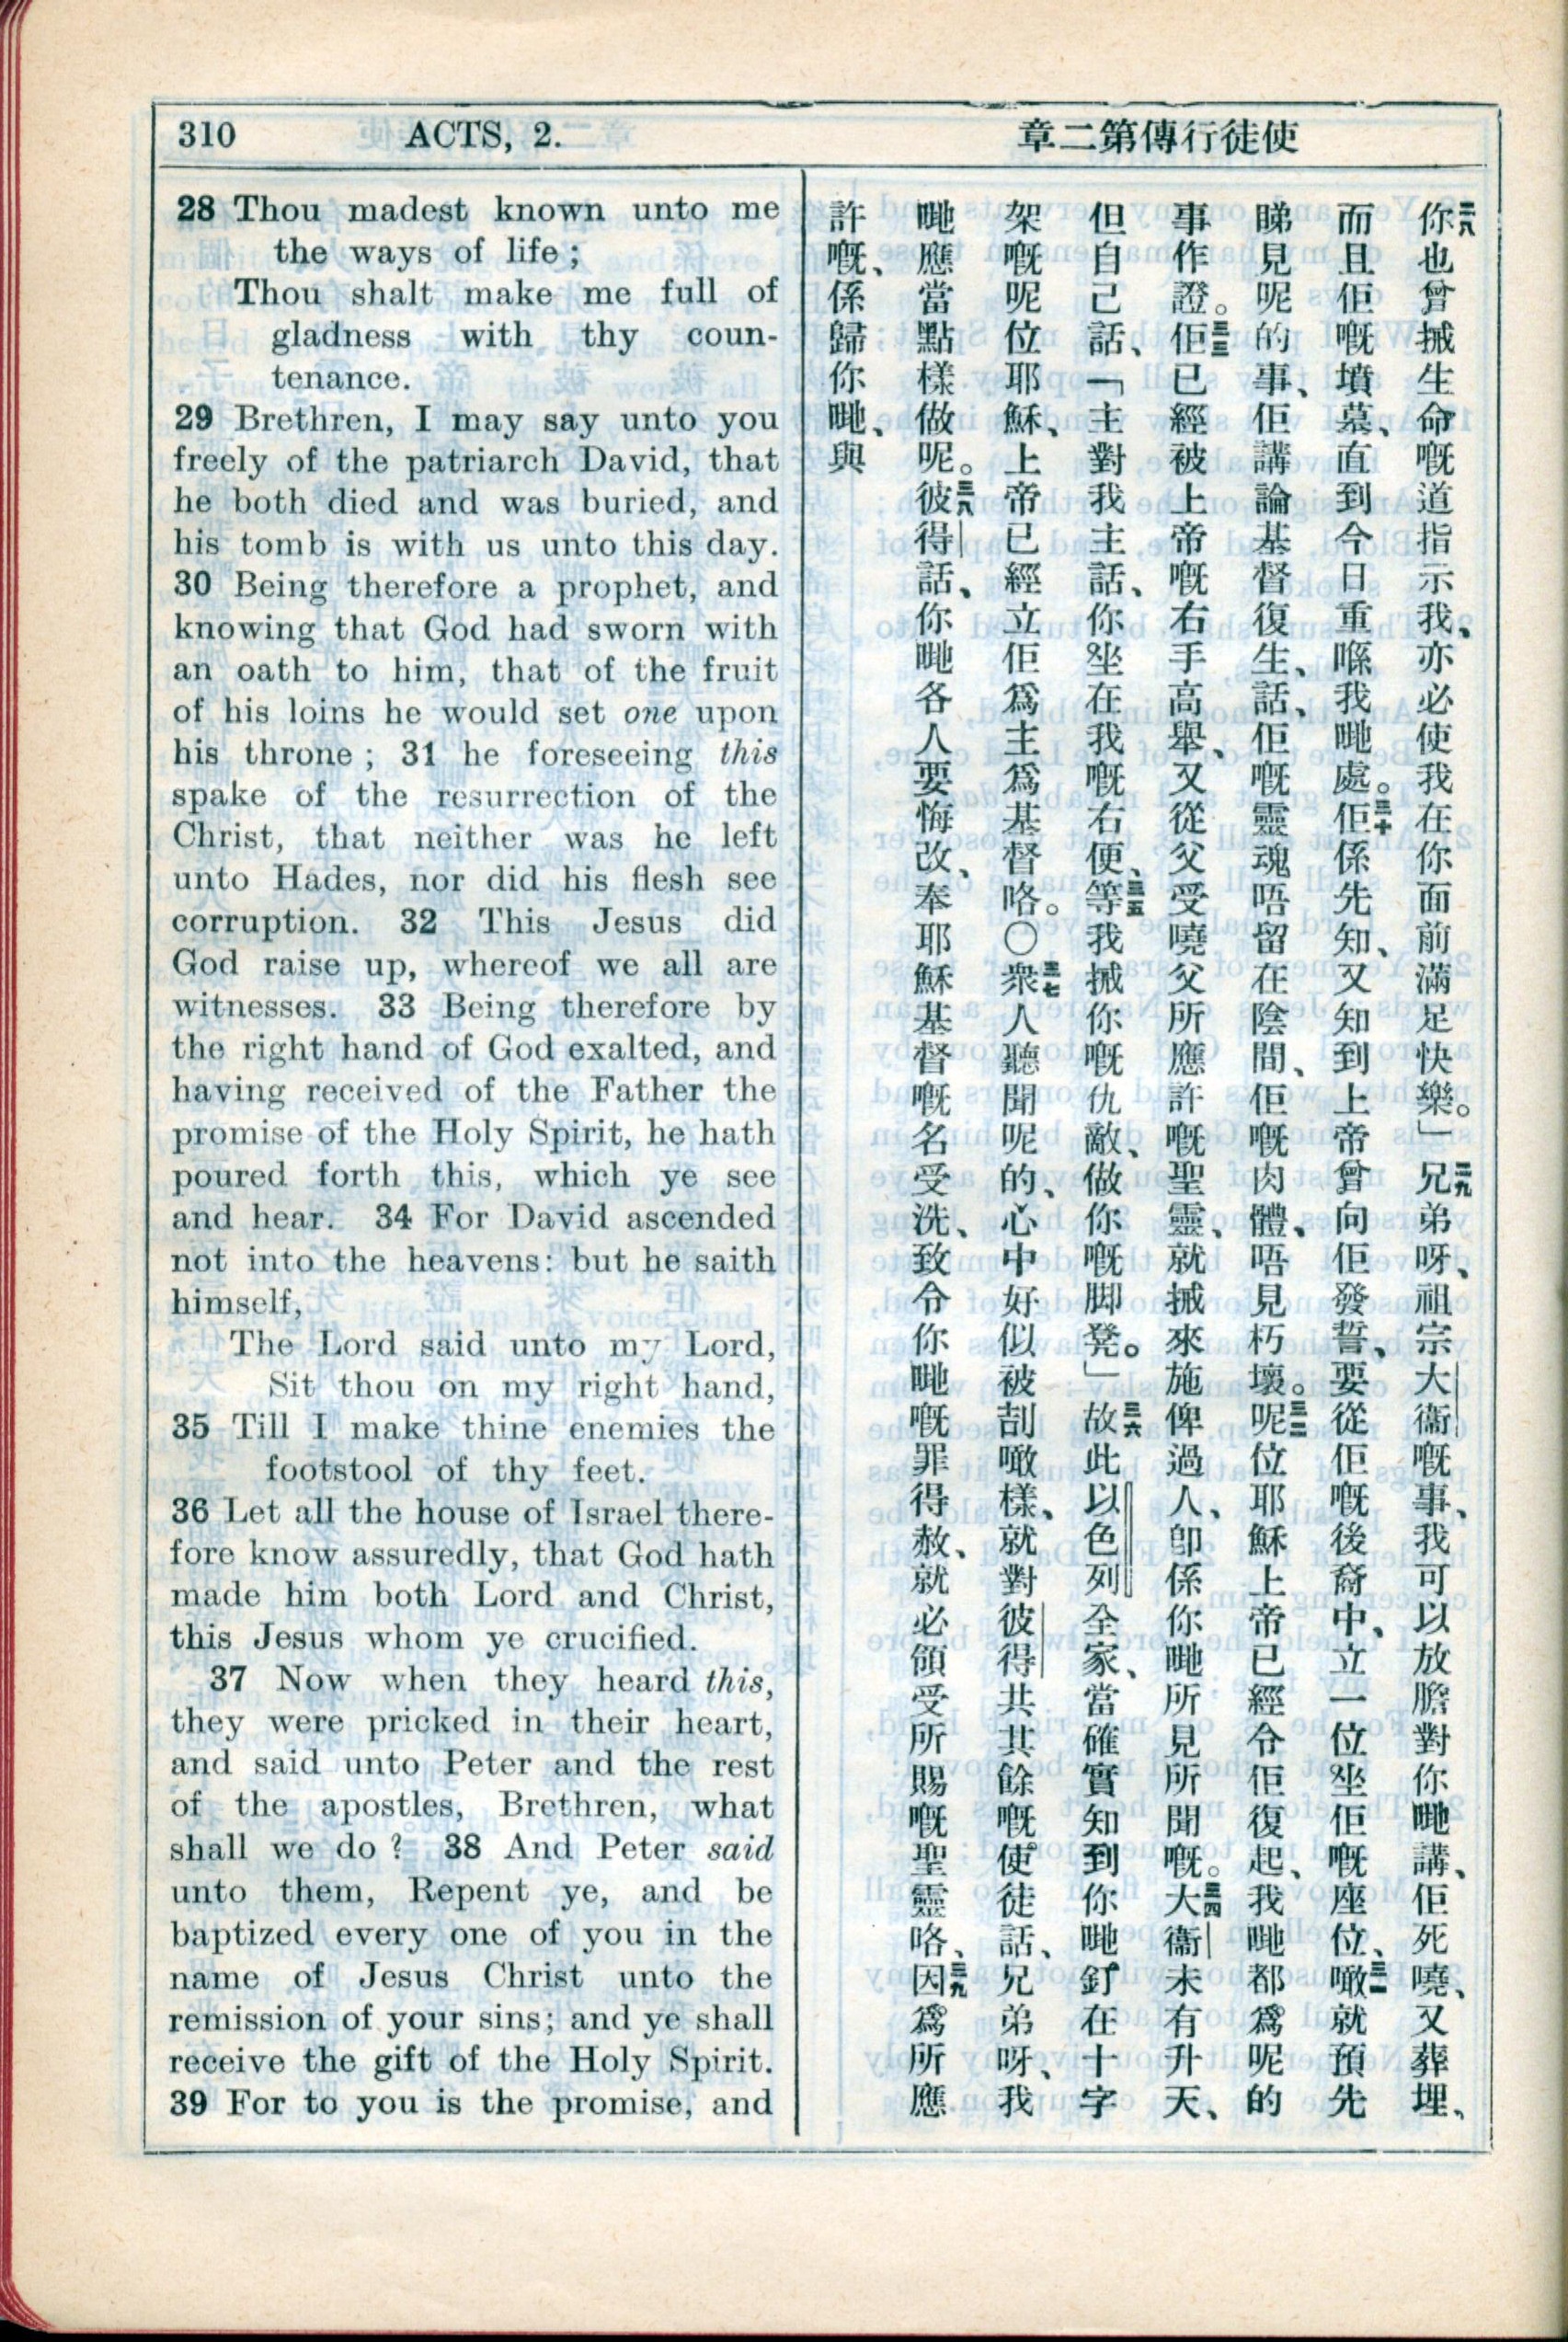 310 ACTS, 2.
章二第傳行徒使
28 Thou madest known unto me
the ways of life ;
Thou shalt make me full of
gladness with thy coun-
tenance.
29 Brethren, I may say unto you
freely of the patriarch David, that
he both died and was buried, and
his tomb is with us unto this day.
30 Being therefore a prophet, and
knowing that God had sworn with
an oath to him, that of the fruit
of his loins he would set one upon
his throne ; 31 he foreseeing this
spake of the resurrection of the
Christ, that neither was he left
unto Hades, nor did his flesh see
corruption. 32 This Jesus did
God raise up, whereof we all are
witnesses. 33 Being therefore by
the right hand of God exalted, and
having received of the Father the
promise of the Holy Spirit, he hath
poured forth this, which ye see
and hear. 34 For David ascended
not into the heavens: but he saith
himself,
The Lord said unto my Lord,
Sit thou on my right hand,
35 Till I make thine enemies the
footstool of thy feet.
36 Let all the house of Israel there-
fore know assuredly, that God hath
made him both Lord and Christ,
this Jesus whom ye crucified.
37 Now when they heard this,
they were pricked in their heart,
and said unto Peter and the rest
of the apostles, Brethren, what
shall we do ? 38 And Peter said
unto them, Repent ye, and be
baptized every one of you in the
name of Jesus Christ unto the
remission of your sins; and ye shall
receive the gift of the Holy Spirit.
39 For to you is the promise, and
二八你也曾搣生命嘅道指示我、亦必使我在你面前滿足快樂。」二九兄弟呀、祖宗大衞嘅事、我可以放膽對你哋講、佢死曉、又葬埋、
而且佢嘅墳墓、直到今日重喺我哋處。三十佢係先知、又知到上帝曾向佢發誓、要從佢嘅後裔中、立一位坐佢嘅座位、三一噉就預先
睇見呢的事、佢講論基督復生、話、佢嘅靈魂唔留在陰間、佢嘅肉體、唔見朽壞。三二呢位耶穌上帝已經令佢復起、我哋都爲呢的
事作證。三三佢已經被上帝嘅右手高舉、又從父受曉父所應許嘅聖靈、就搣來施俾過人、卽係你哋所見所聞嘅。三四大衞未有升天、
但自己話、「主對我主話、你坐在我嘅右便、三五等我搣你嘅仇敵、做你嘅脚凳。」三六故此以色列全家、當確實知到你哋釘在十字
架嘅呢位耶穌、上帝已經立佢爲主爲基督咯。〇三七衆人聽聞呢的、心中好似被刮噉樣、就對彼得共其餘嘅使徒話、兄弟呀、我
哋應當點樣做呢。三八彼得話、你哋各人要悔改、奉耶穌基督嘅名受洗、致令你哋嘅罪得赦、就必領受所賜嘅聖靈咯、三九因爲所應
許嘅、係歸你哋、與